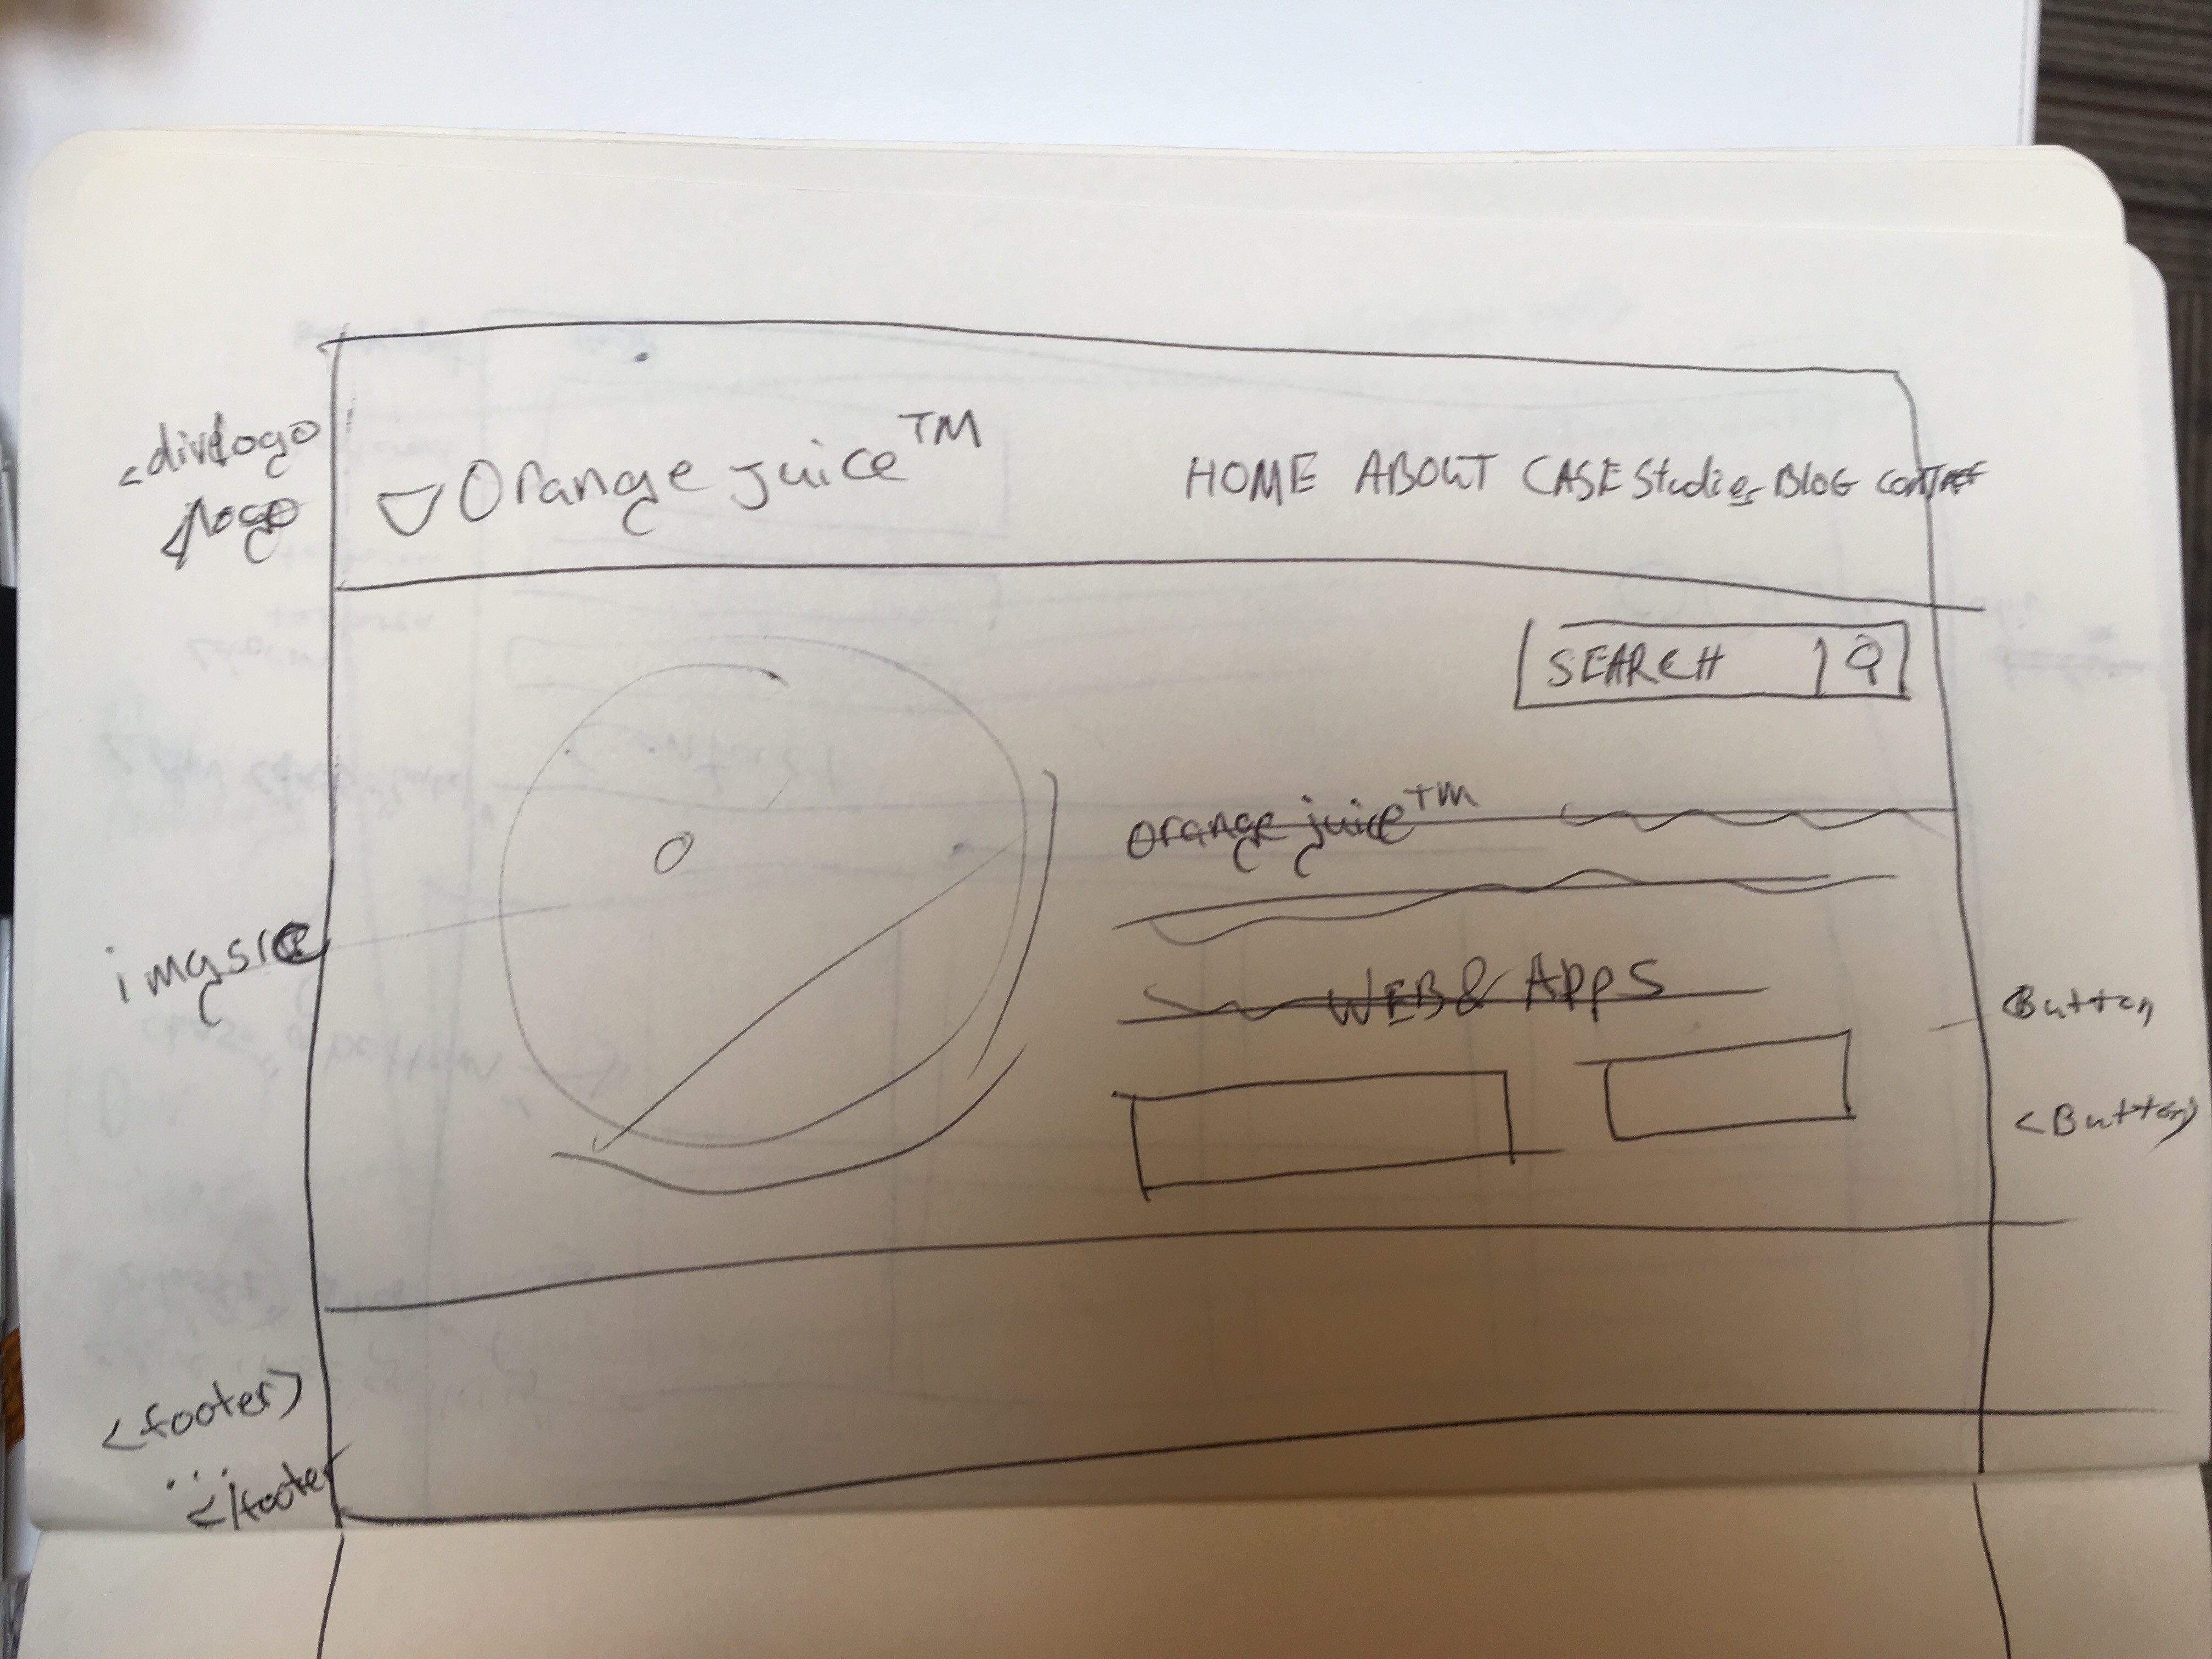 <div logo
/logo
Orange juice™
HOME ABOUT CASE Studies BLOG contact
SEARCH
orange juice™
imgsrc
WEB & APPS
Button
<Button>
<footer>
...
</footer